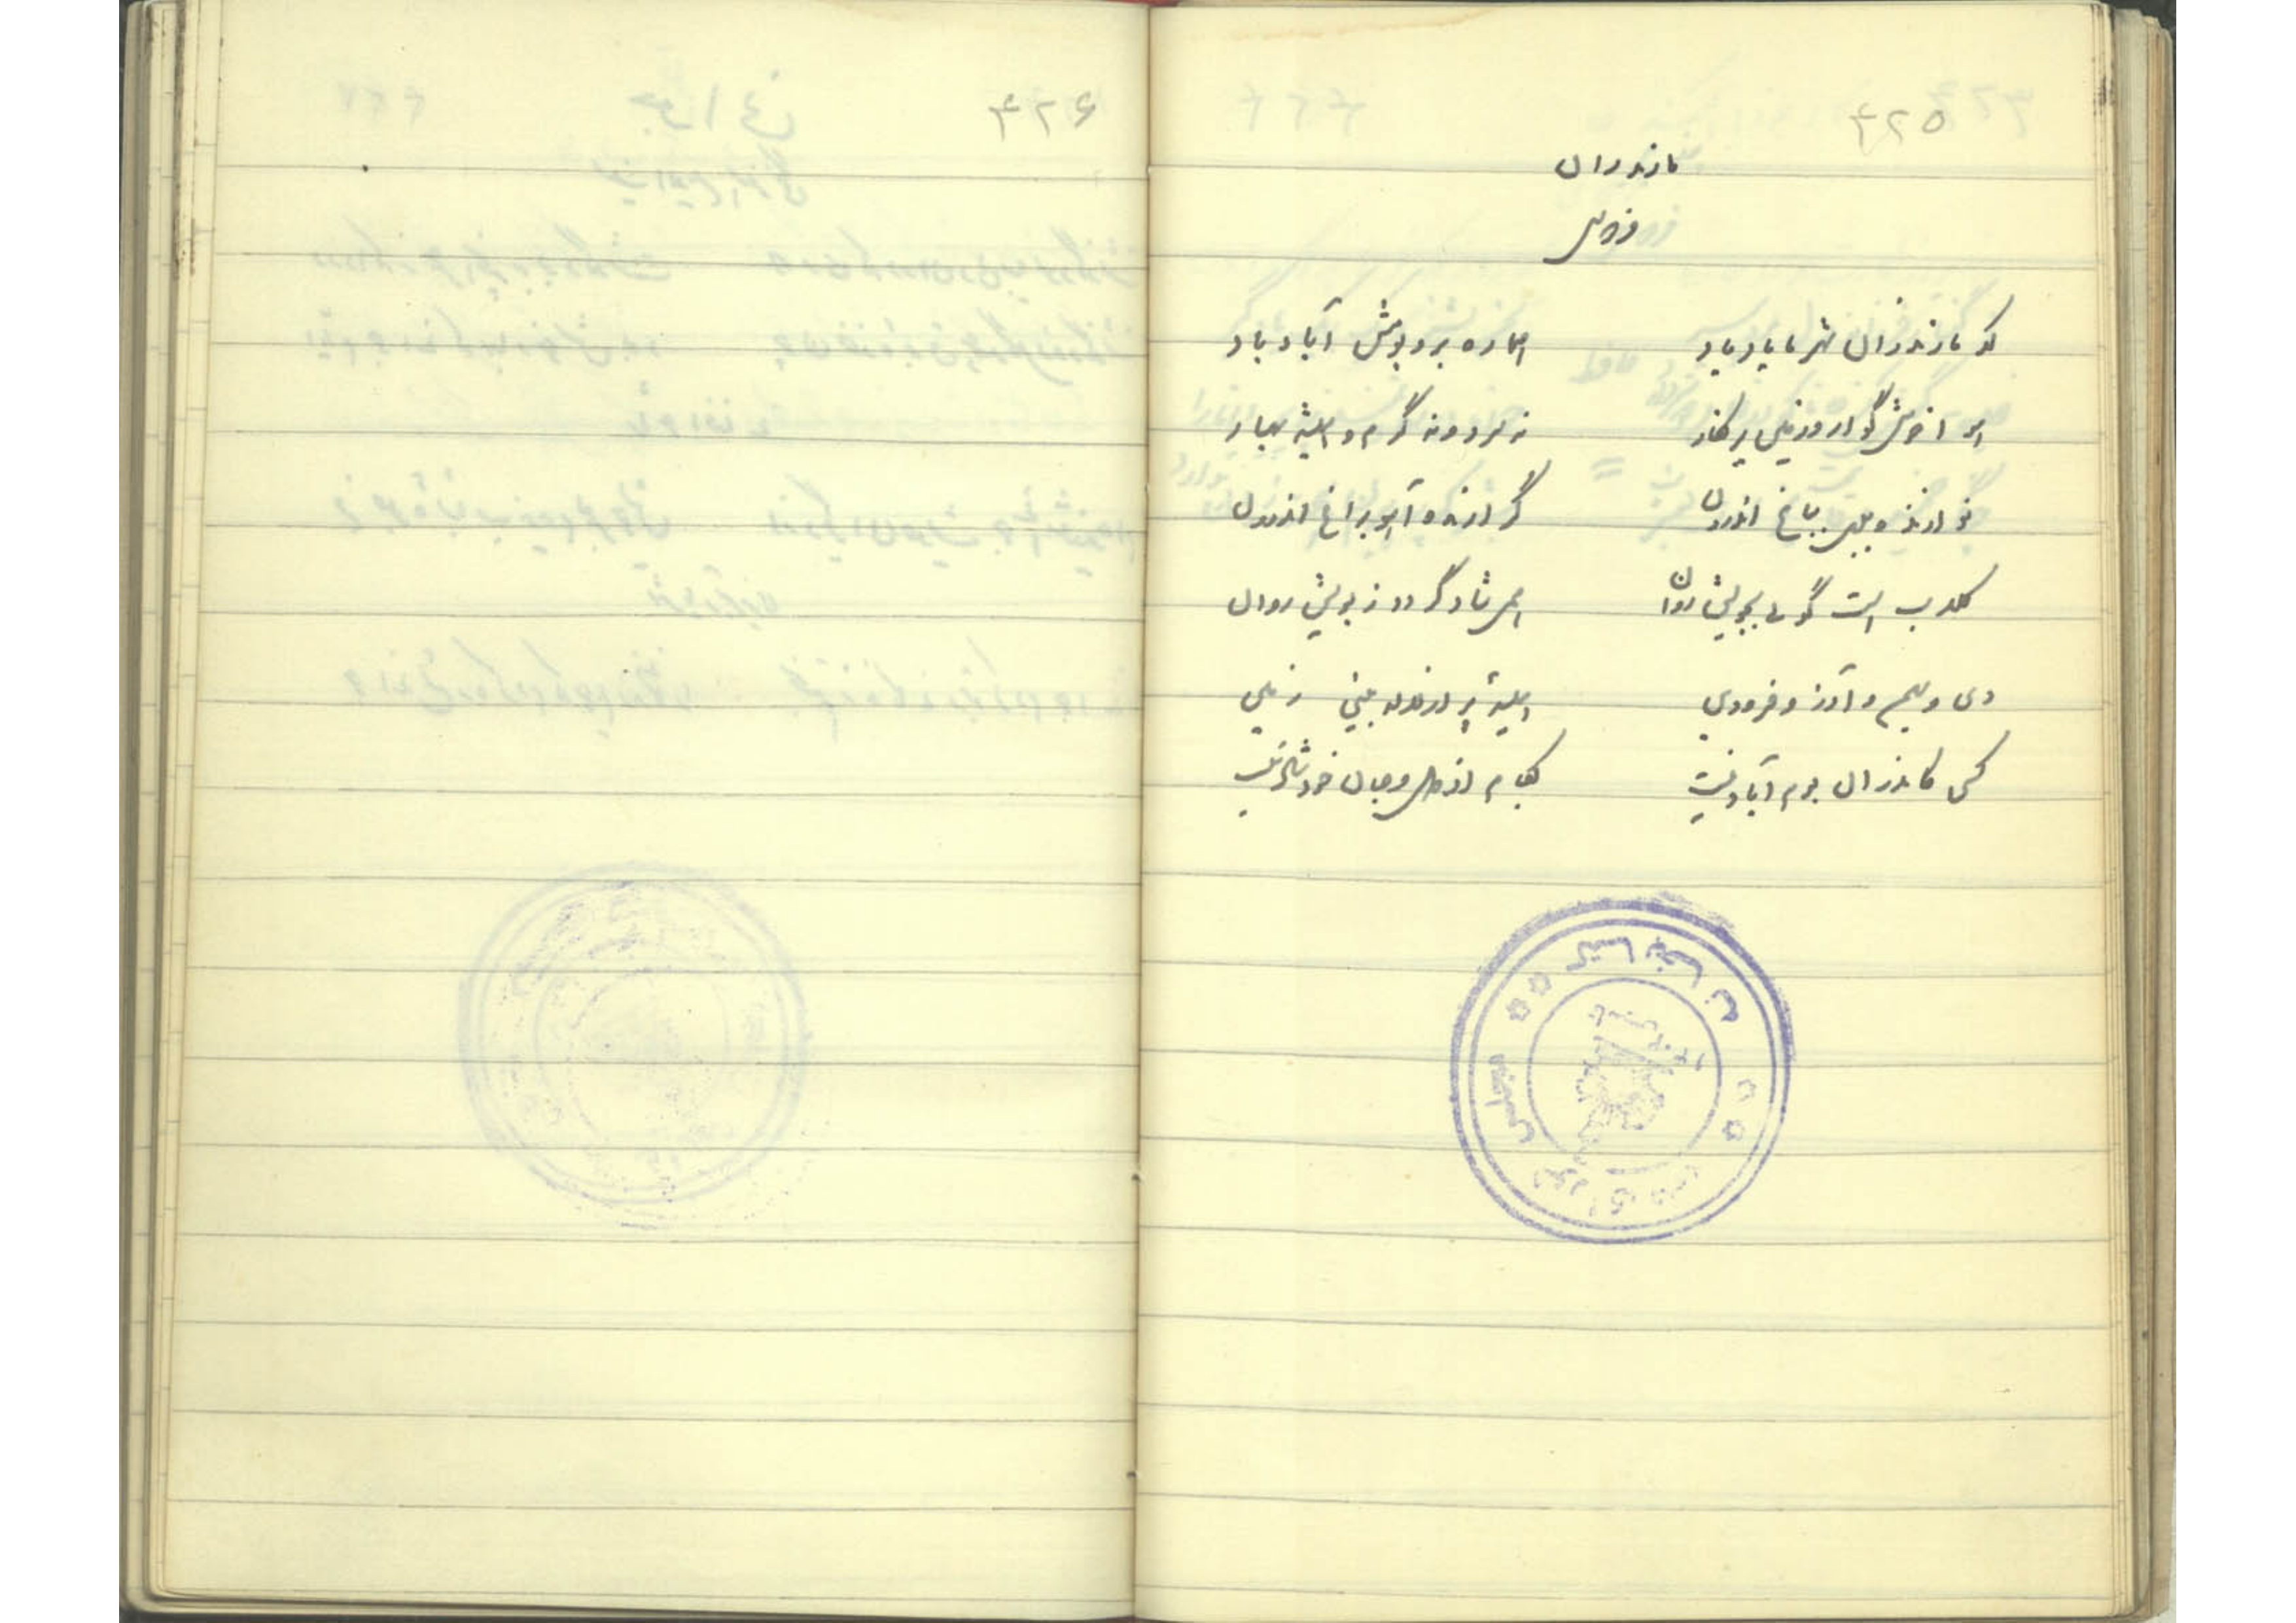 ۴۲۵
مازندران
فردوسی
که مازندران شهر ما یاد باد همیشه بر و بومش آباد باد
هوا خوشگوار و زمین پرنگار نه سرد و نه گرم و همیشه بهار
نوازنده بلبل بباغ اندرون گرازنده آهو براغ اندرون
گلاب است گوئی بجویش روان همی شاد گردد ز بویش روان
دی و بهمن و آذر و فرودین همیشه پر از لاله بینی زمین
کسی کاندران بوم آباد نیست بکام از دل و جان خود شاد نیست
کتابخانه
مجلس شورای ملی
۴۲۶